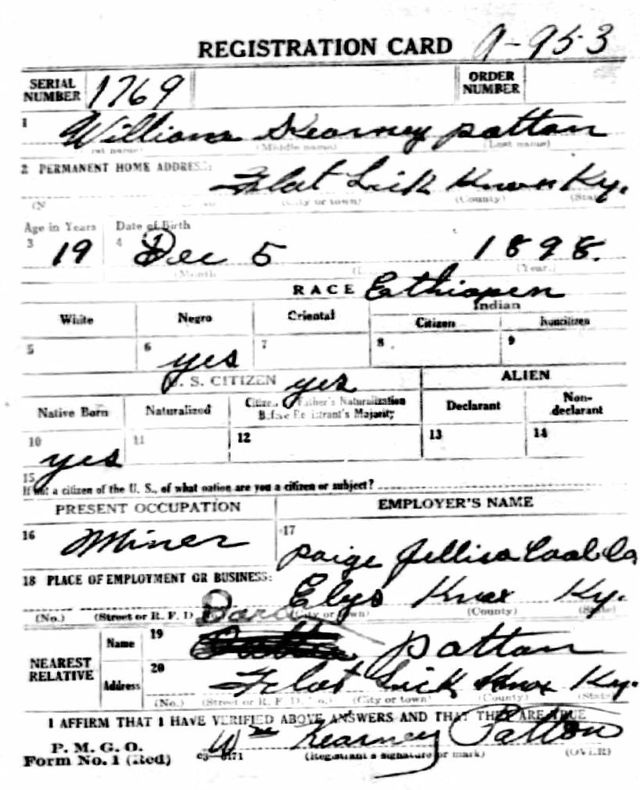 REGISTRATION CARD 9-953
SERIAL NUMBER 1769 ORDER NUMBER
1 William Kearney Patton
(Middle name) (Last name)
2 PERMANENT HOME ADDRESS:
Flat Lick Knox Ky.
(City or town) (County) (State)
Age in Years Date of Birth
3 19 4 Dec 5 1898.
(Month (Year)
RACE Ethiopen
White Negro Oriental Indian
Citizen Noncitizen
5 6 yes 7 8 9
U. S. CITIZEN yes ALIEN
Native Born Naturalized Citizen Father's Naturalization Before Registrant's Majority Declarant Non-declarant
10 yes 11 12 13 14
15 If not a citizen of the U. S., of what nation are you a citizen or subject?
PRESENT OCCUPATION EMPLOYER'S NAME
16 Miner 17 Paige Jellico Coal Co
18 PLACE OF EMPLOYMENT OR BUSINESS:
Elys Knox Ky.
(No.) (Street or R. F. D. (City or town) (County) (State)
NEAREST RELATIVE Name 19 Patton
Address 20 Flat Lick Knox Ky.
(No.) (Street or R. F. D. No.) (City or town) (County) (State)
I AFFIRM THAT I HAVE VERIFIED ABOVE ANSWERS AND THAT THEY ARE TRUE
P. M. G. O.
Form No. 1 (Red) Wm Kearney Patton
(Registrant's signature or mark) (OVER)